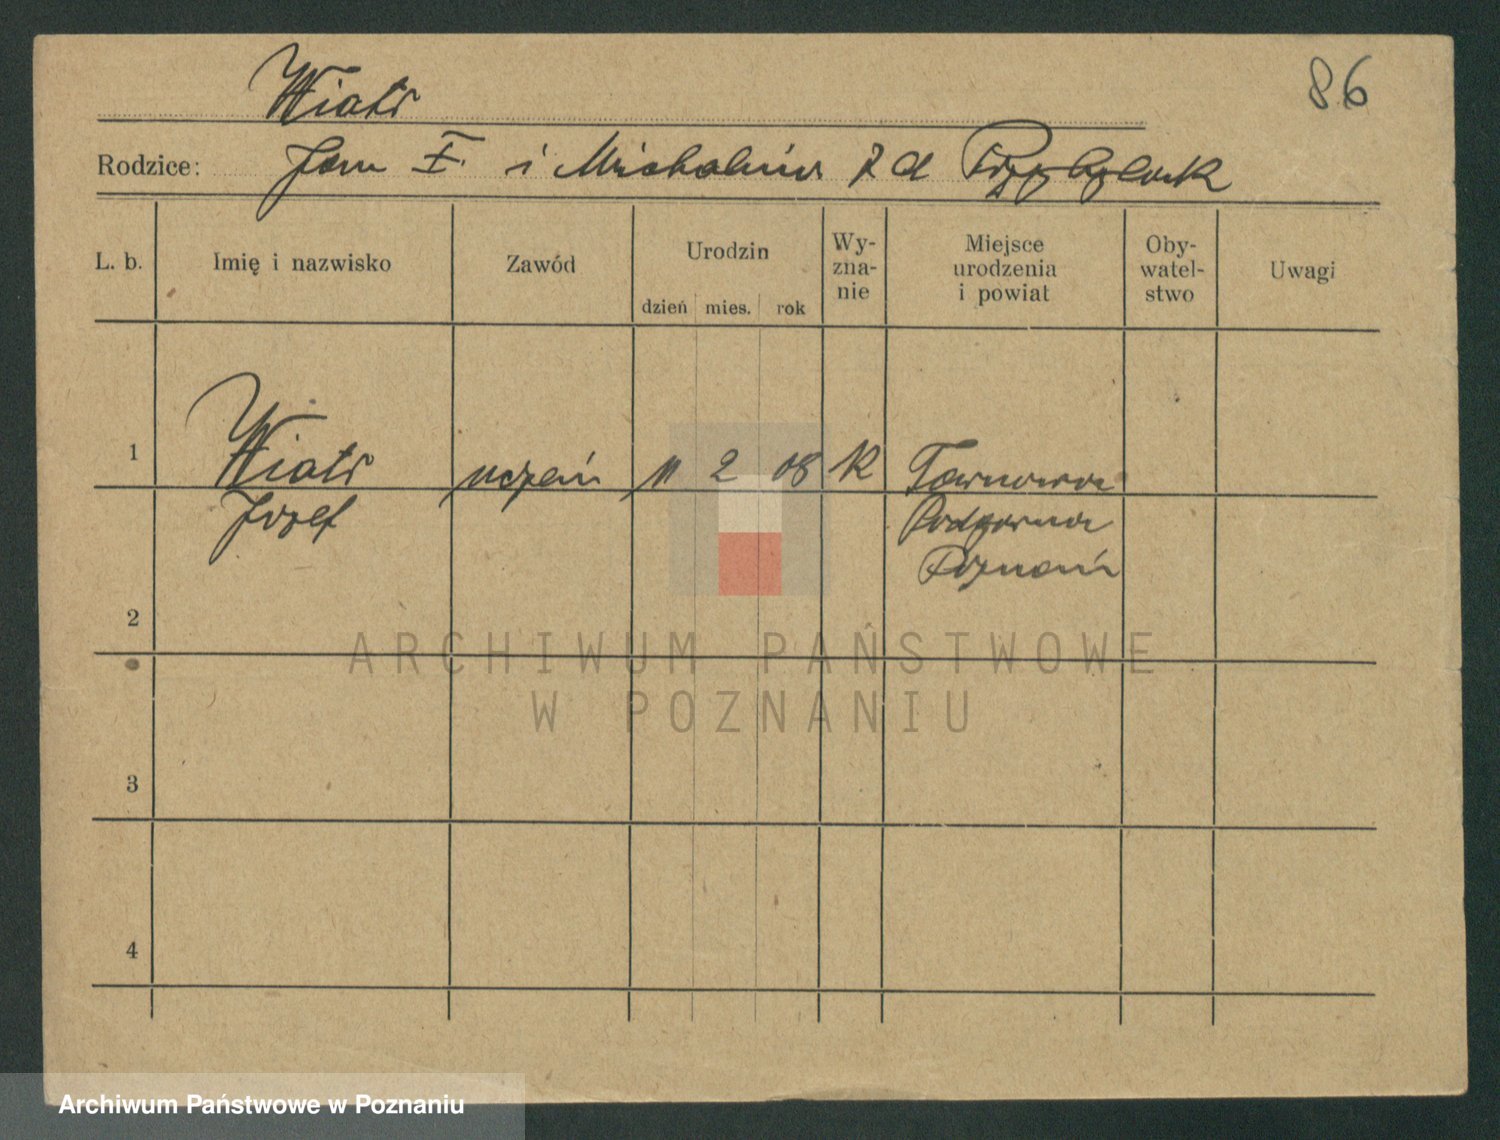 Wiatr
86
Rodzice: Jan F. i Michalina z d Przybylak
L. b.
Imię i nazwisko
Zawód
Urodzin
dzień mies. rok
Wy-
zna-
nie
Miejsce
urodzenia
i powiat
Oby-
watel-
stwo
Uwagi
1
Wiatr uczeń 11 2 08 K Tarnowo
Józef Podgórna
Poznań
2
3
4
ARCHIWUM PAŃSTWOWE
W POZNANIU
Archiwum Państwowe w Poznaniu